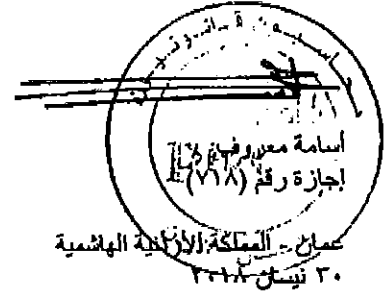 أسامة معروف
إجازة رقم (٧١٨)
عمان - المملكة الأردنية الهاشمية
٣٠ نيسان ٢٠١٨